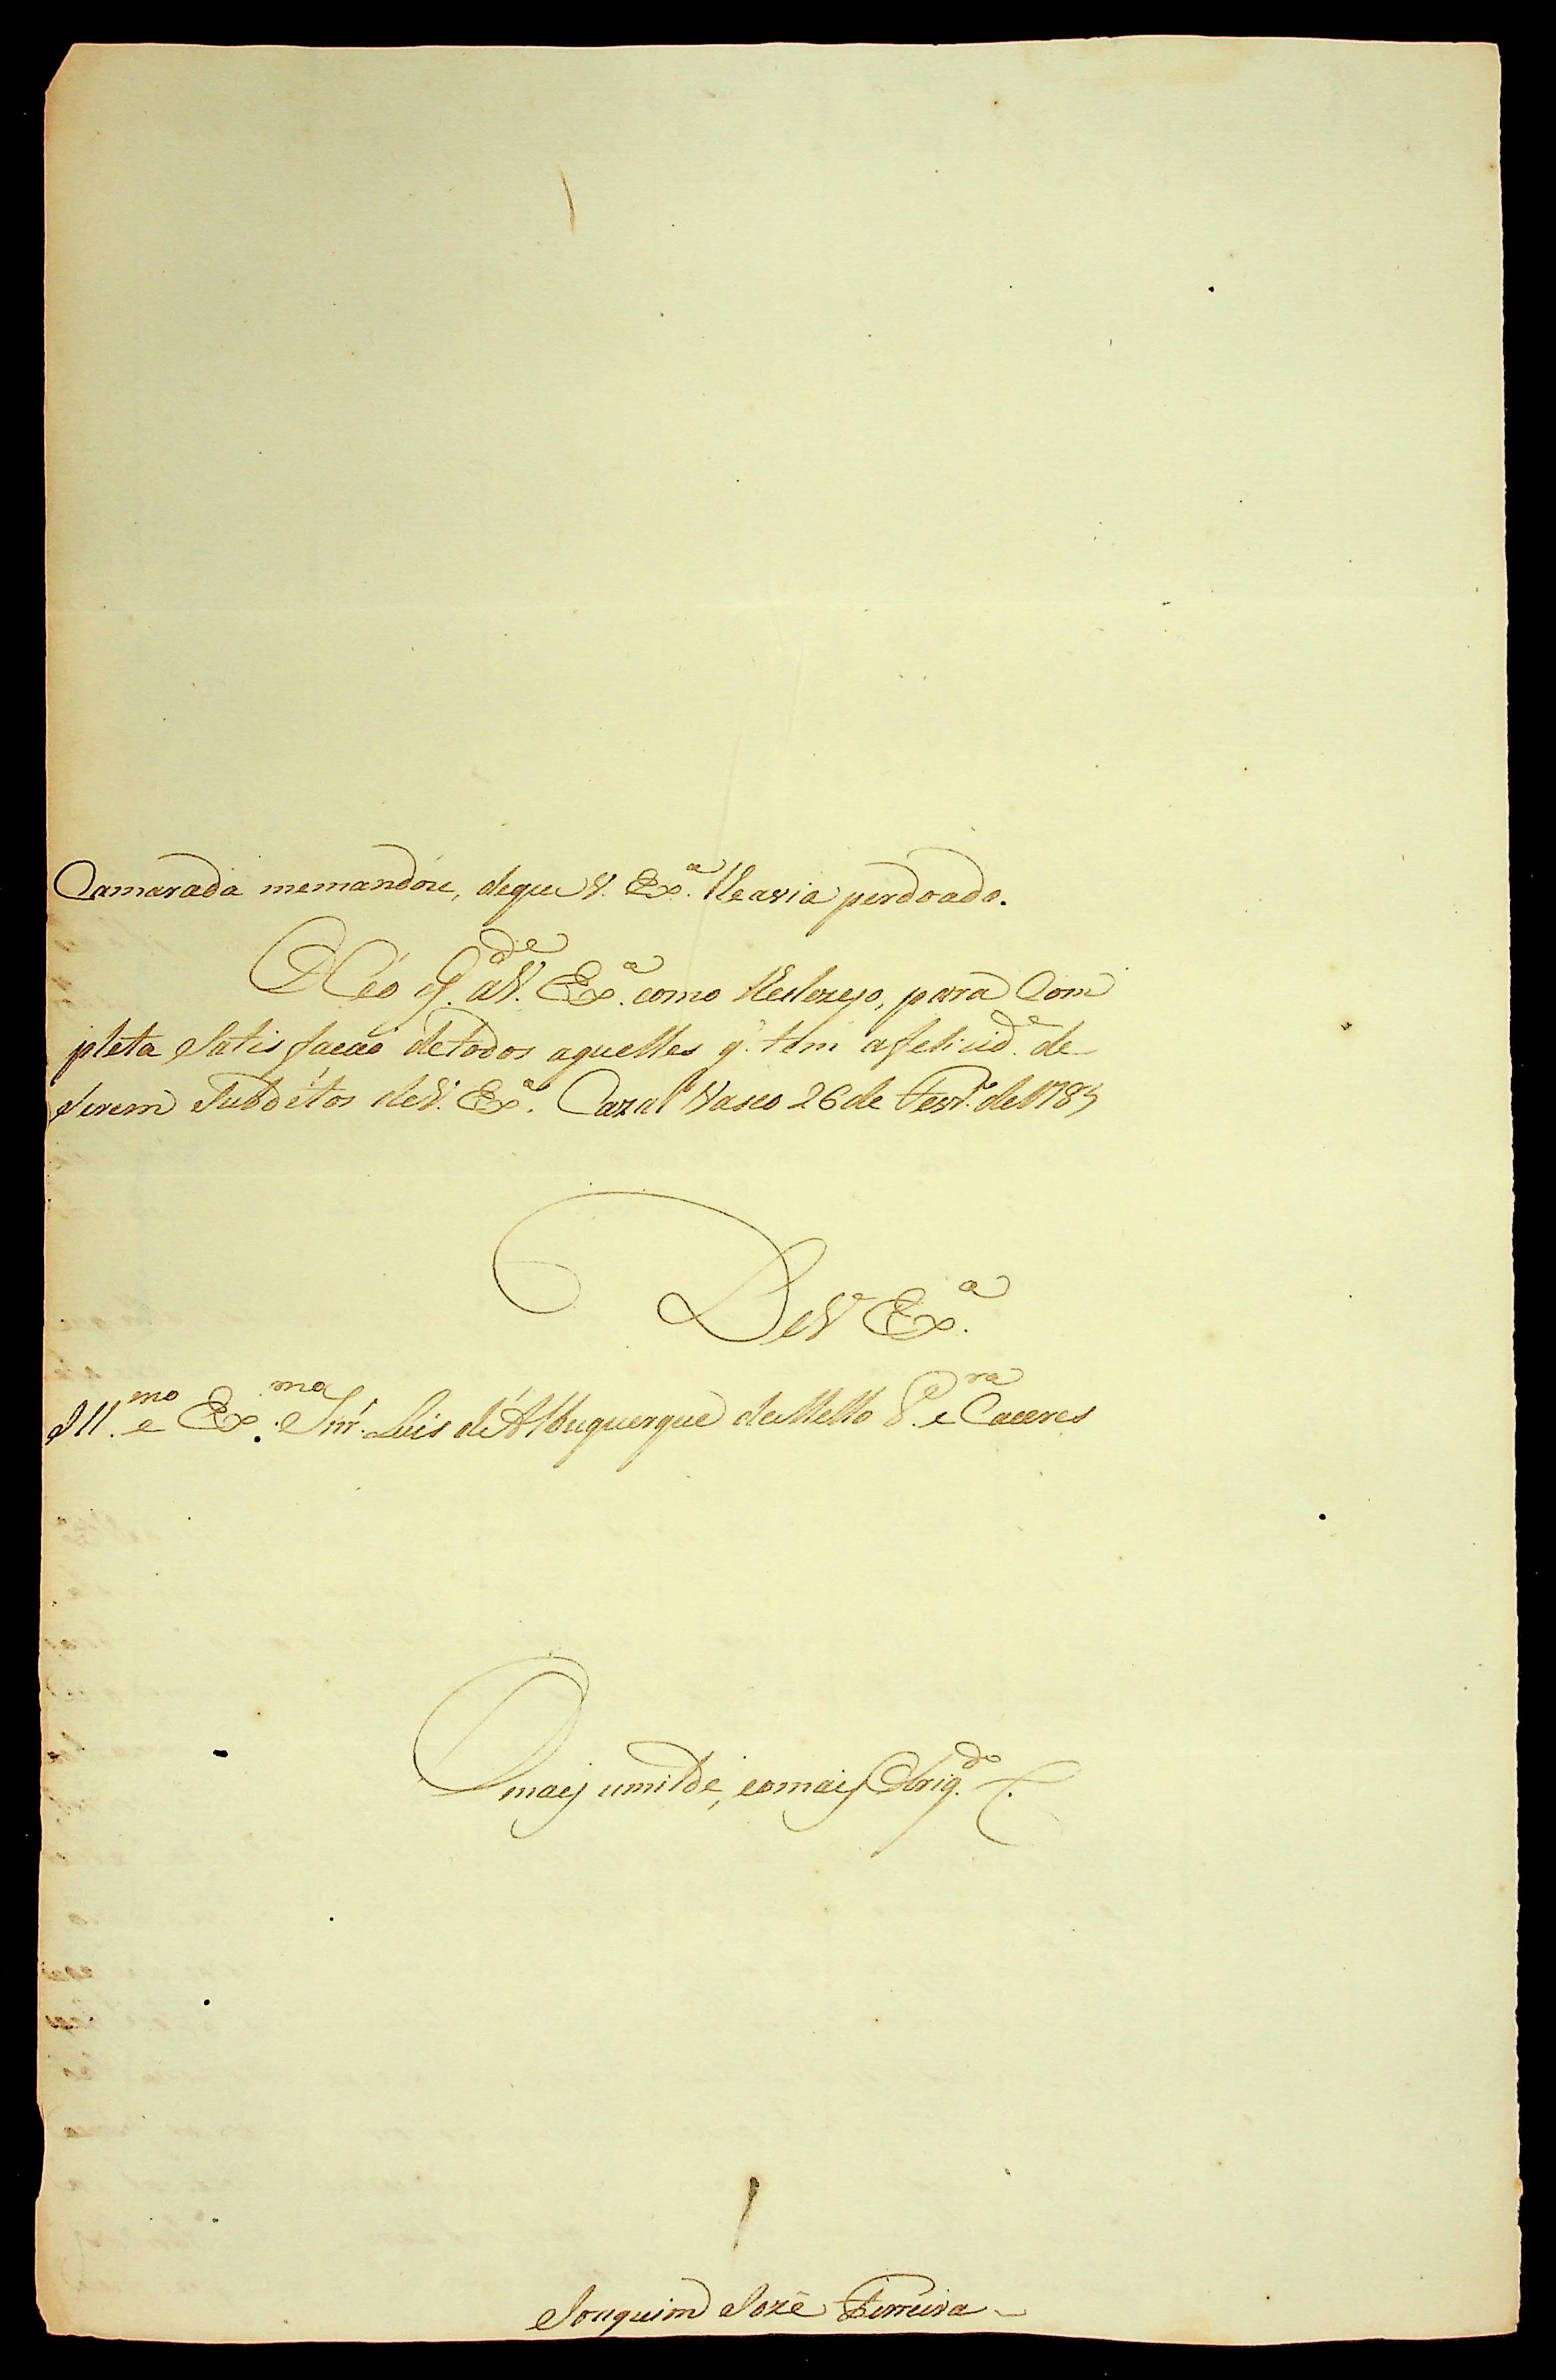 Camarada memandóu, deque V. Ex.ª lleavia perdoado.
O Céo g.de aV. Ex.ª como lledezejo, para Com
pleta Satisfacaõ detodos aquelles q. tem afelicid.e de
Serem Subditos deV. Ex.ª. Cazal Vasco 26 de Fevr.º de 1785
DeV Ex.ª
Ill.mo e Ex.mo Snr. Luis de Albuquerque deMello P.ra e Caceres
O mais umilde, eomais Obrig.do C.
Joaquim Jozé Ferreira